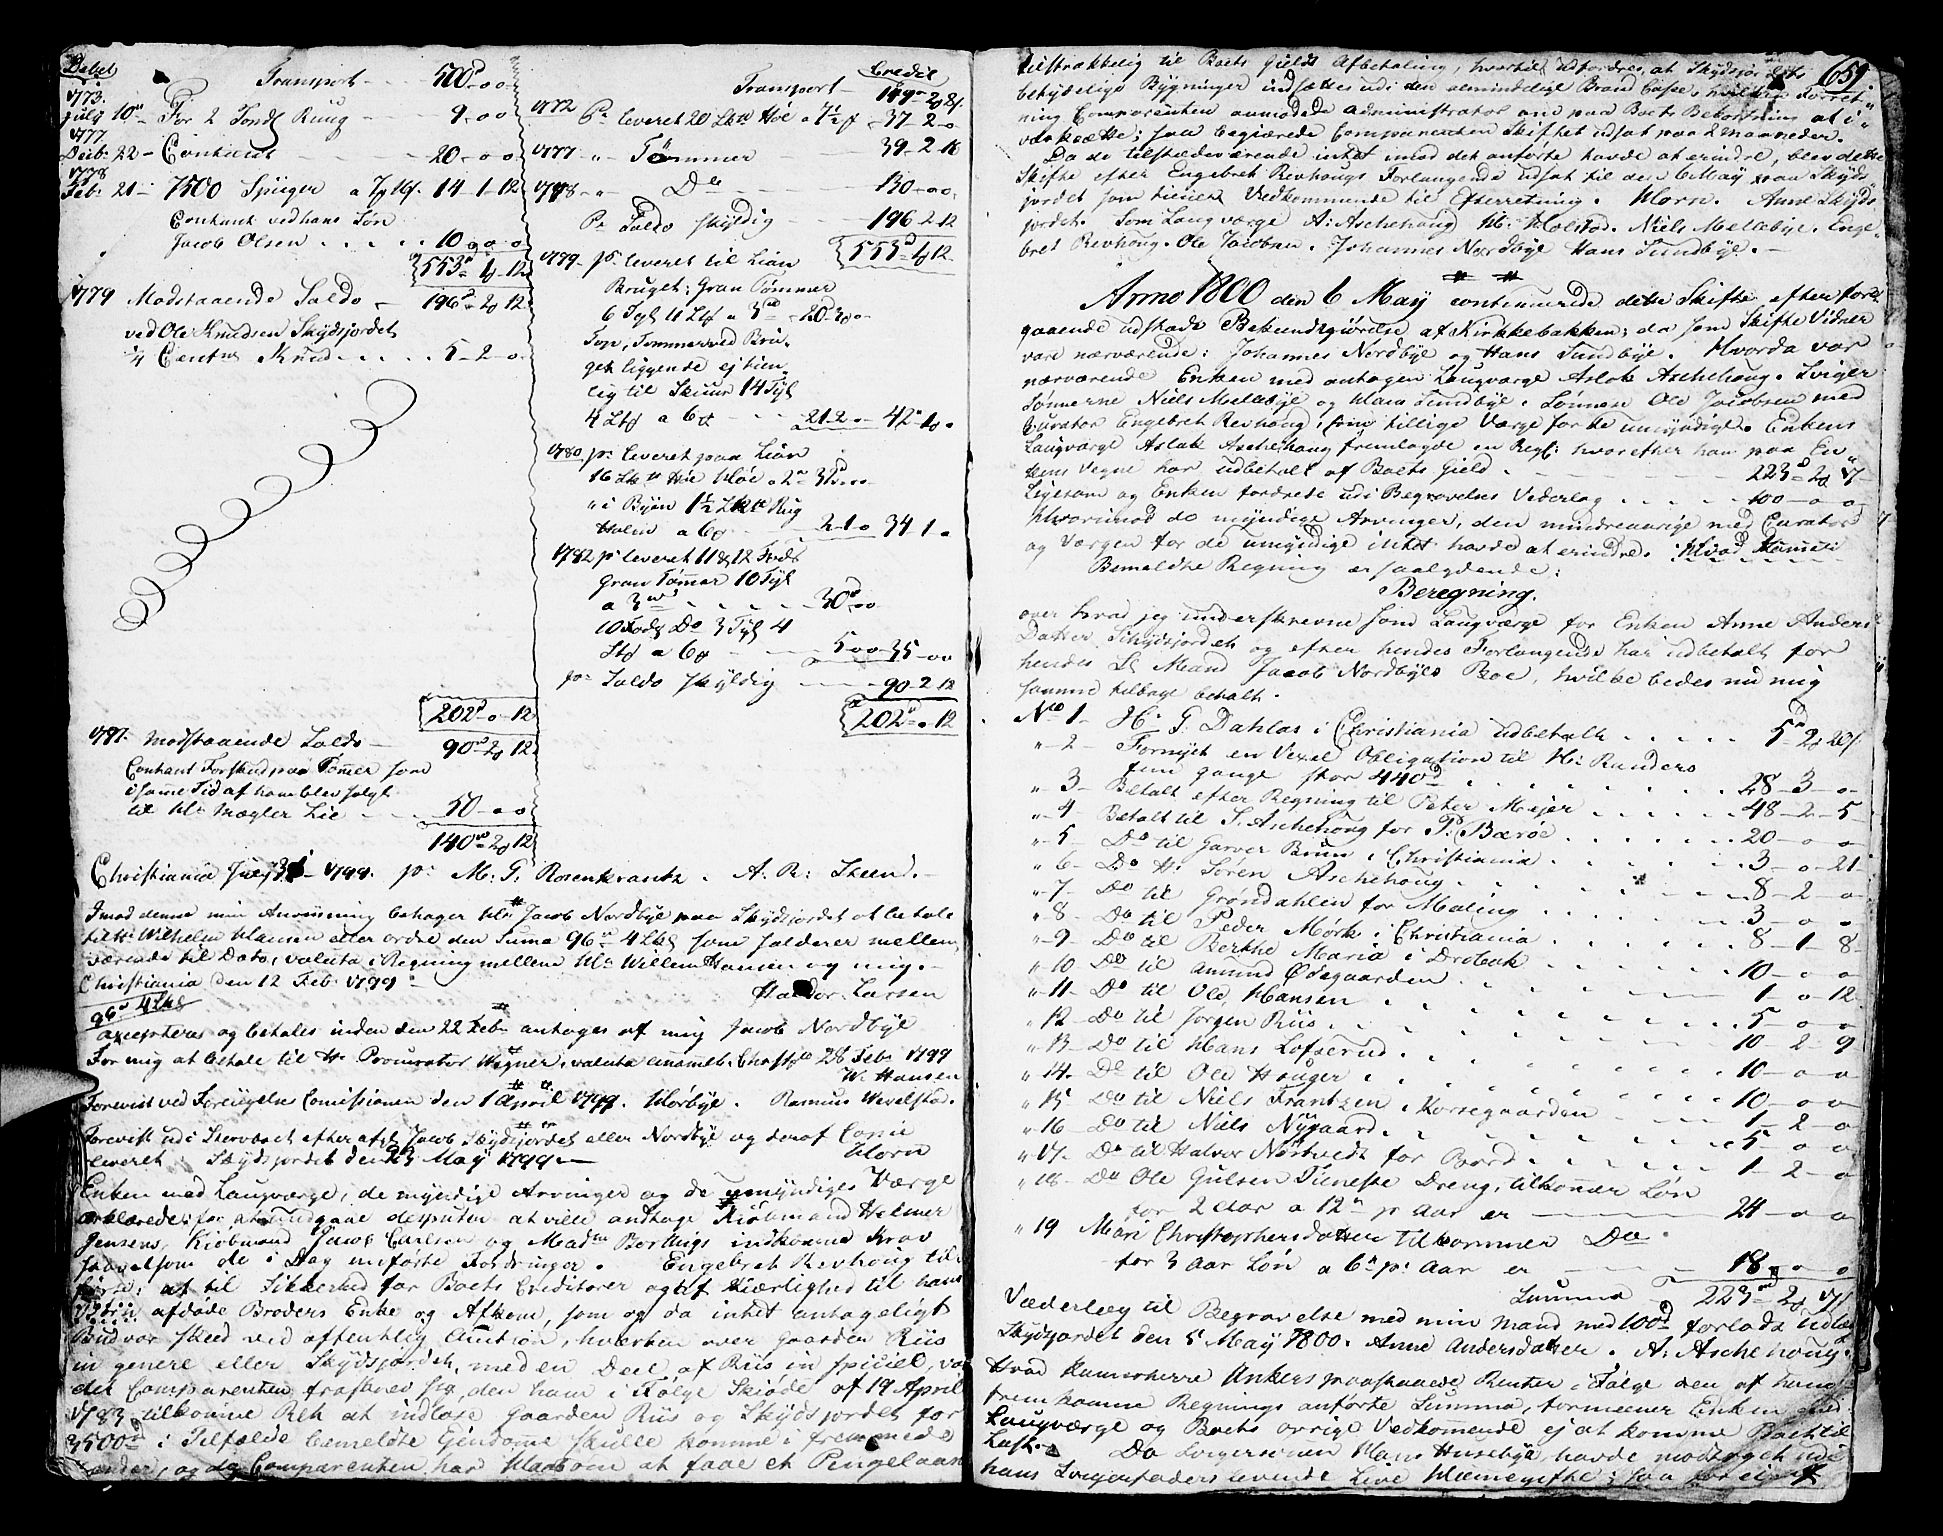 Debet
Transport - - 500d - o - o
1773.
July 10de For 2 Tønd Ruug - - 9 - o - o
1777
Decbr 22 - Contant - - 20 - o - o
1778
Febr 21 - 7500 Spiiger a 14 - 1 - 12
Contant ved hans Søn
Jacob Olsen . . . . 10 - o - o
553d - 1 - 12
1779 Modstaaende Saldo - 196d - 2 - 12
ved Ole Knudsen Skydsjordet
Knud . . . . 5 - 2 - o
202d - o - 12
1787. Modstaaende Saldo - 90 - 2 - 12
Contant Forskud paa Tømer som
i same Tid af ham blev solgt
til Hr Mægler Lie - - 50 - o - o
140 - 2 - 12
Credit
Transport - 149 - 2 - 8
1772 Pr leveret 20 Høe a 7½ - 37 - 2 - o
1777 - " - Tømmer - - 39 - 2 - 16
1778 - " Do - - 130 - o - o
Pr Saldo skyldig - - 196 - 2 - 12
553d - 1 - 12
1779 - pr leveret til Lian
Bruget: Gran Tømmer
6 Tylt 11 a 3 - 20 - 3 - o
Top, Tømmer ved Bru,
get liggende ej tien,
lig til Skuur 14 Tylt
4 a 6 - - 21 - 2 - o - 42 - 1 - o
1780 pr leveret paa Lian
16 Høe a 2 - 32 - o - o
" i Byen 1½ Rug
Halm a 6 - - 2 - 1 - o 34 - 1 - o
1782 pr leveret 11 & 12 Fods
Gran Tømmer 10 Tylt
a 3 . . . . - 30 - o - o
10 Fods Do 3 Tylt 4
a 6 - - 5 - o - o - 35 - o - o
pr Saldo skyldig - - 90 - 2 - 12
202 - o - 12
Christiania July 1799. pr M: G: Rosenkrantz. A. R: Steend. -
Imod denne min Anviisning behager Hr Jacob Nordbye paa Skydsjordet at betale
til Hr Wilhelm Hansen eller ordre den Suma 96 4 som salderer mellem,
værende til Dato, valuta i Regning mellem Hr Willem Hansen og mig. -
Christiania den 12 Feb: 1799 -
Haldor Larsen
96 4
accepteres og betales inden den 22 Febr antages af mig Jacob Nordbye
For mig at betale til Hr Procurator Wegner, valuta 28 Febr 1799
W: Hansen
Foreviist ved Foreningelse Comissionen den 1 April 1799. Hörbye. Rasmus Wevelstad.
Foreviist udi Stervboet efter afg: Jacob Skydsjordet eller Nordbye og deraf Copie
leveret. Skydsjordet den 23 May 1799 -
Horn
Enken med Laugværge, de myndige Arvinger og de umyndiges Værge
erklærede; for at undgaae disputer at ville antage Kiøbmand Helmer
Jensens, Kiøbmand Jacob Carlsen og Madm Borthigs indkomne Krav
saavelsom de i Dag anførte Fordringer. Engebret Revhoug til,
førte: at til Sikkerhed for Boets Creditorer og af Kiærlighed til hans
afdøde Broders Enke og Afkom, som og da intet antageligt
Bud var skeed ved offentlig Auction, hverken over gaarden Riis
in genere eller Skydsjordet, med en Deel af Riis in speciel, var
det Comparenten fraskrev sig, den ham i Følge Skiøde af 19 April
1783 tilkomne Ret at indløse Gaarden Riis og Skydsjordet for
3500 i Tilfælde bemeldte Ejendomme skulle komme i fremmede
Hænder, og da Comparenten har Haab om at faae et Pengelaan
659
tilstrækkelig til Boets Gields Afbetaling, hvortil udfordres, at Skydsjordets
betydelige Bygninger indsættes udi den almindelige Brand Casse, hvilken Forret,
ning Comparenten anmodede Administrator om paa Boets Bekostning at i,
værksætte; saa begiærede Comparenten Skiftet udsat paa 2 Maaneder.
Da de tilstædeværende intet imod det anførte havde at erindre, blev dette
Skifte efter Engebret Revhougs Forlangende udsat til den 6 May paa Skyds
jordet som tiener Vedkommende til Efterretning. Horn. Anne Skyds
jordet. Som Laugværge A: Aschehoug H: Holstad. Niels Mellebye. Enge,
bret Revhoug. Ole Jacobsen. Johannes Nordbye Hans Sundbye. -
Anno 1800 den 6 May continuerede dette Skifte efter fore,
gaaende udstæde Bekiendtgiørelse af Kirkkebakken; da som Skifte Vidner
vare nærværende: Johannes Nordbye og Hans Sundbye. Hvorda var
nærværende Enken med antagen Laugværge Aslak Aschehoug. Sviger
Sønnerne Niels Mellebye og Hans Sundbye. Sønnen Ole Jacobsen med
Curator Engebret Revhoug, som tillige Værge for de umyndige. Enkens
Laugværge Aslak Aschehoug fremlagde en Regl: hvorefter han paa En,
kens Vegne har udbetalt af Boets Gield. - - 223d - 2 - 7
Ligesom og Enken fordrede udi Begravelses Vederlag . . . . 100 - o - o
Hvorimod de myndige Arvinger, den mindreaarige med Curator
og Værgen for de umyndige intet havde at erindre.
Bemeldte Regning er saalydende:
Beregning.
over hvad jeg underskrevne som Laugværge for Enken Anne Anders
Datter Skydsjordet og efter hendes Forlangende har udbetalt for
hendes Sl Mand Jacob Nordbyes Boe, hvilke bedes nu mig
samme tilbage betalt.
No 1 - Hr G: Dahlas i Christiania udbetalt . . . . . 5d - 2 - 20
" - 2 - Fornyet en Vexel Obligation til Hr Randers
fem gange stor 440d . . . . . . 28 - 3 - o
" 3 - Betalt efter Regning til Peter Mejer . . . . . 48 - 2 - 5
" - 4 - Betalt til S. Aschehoug for P: Bærøe . . . . 20 - o - o
" 5 - Do til Garver Brun i Christiania . . . . 3 - o - 21
" 6 - Do H: Søren Aschehoug . . . . 8 - 2 - o
" - 7 - Do til Grøndahlen for Maling . . . . 3 - o - o
" 8 - Do til Peder Mørk i Christiania . . . . 8 - 1 - 8
" - 9 - Do til Berthe Maria i Drøbak
" 10 - Do til Amund Ødegaarden . . . . 10 - o - o
" 11 - Do til Ole Hansen . . . . 1 - o - 12
" 12 - Do til Jørgen Riis . . . . 5 - o - o
" 13 - Do til Hans Lofserud . . . . 10 - 2 - 9
" 14 - Do til Ole Houger . . . . 10 - o - o
" 15 - Do til Niels Frantzen i Korsegaarden - - 10 - o - o
" 16 - Do til Niels Nygaard . . . . 1 - 2 - o
" 17 - Do til Halvor Nortvedt for Bord . . . . 5 - o - o
1 - 2 - o
" 18 - Do Ole Gulsen Tieneste Dreng, tilkommer Løn
for 2 Aar a 12 p Aar er - - 24 - o - o
" 19 Mari Christophersdatter tilkommer Do.
for 3 Aar Løn a 6 pr: Aar er - - 18 - o - o
Summa - 223 - 2 - 7
Væderlag til Begravelse med min Mand med 100d forlods udlæ
Skydsjordet den 5 May 1800. Anne Andersdatter. A: Aschehoug.
Hvad Kamerherre Ankers paastaaede Renter i Følge den af ham
fremkomne Regnings anførte Summa, formeener Enken med
Laugværge og Boets øvrige Vedkommende ej at komme Boet til
Last. Da Svigersønnen Hans Husebye, havde modtaget udi
hans Svigerfaders levende Live Hiemegifte; saa